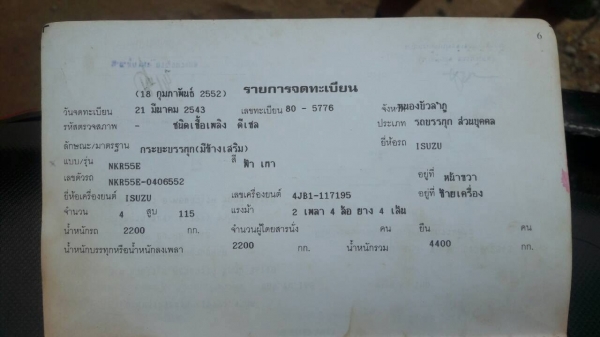 6
(18 กุมภาพันธ์ 2552) รายการจดทะเบียน
วันจดทะเบียน 21 มีนาคม 2543 เลขทะเบียน 80 - 5776 จังหวัด หนองบัวลำภู
รหัสตรวจสภาพ - ชนิดเชื้อเพลิง ดีเซล ประเภท รถบรรทุก ส่วนบุคคล
ลักษณะ/มาตรฐาน กระบะบรรทุก(มีข้างเสริม) ยี่ห้อรถ ISUZU
แบบ/รุ่น NKR55E สี ฟ้า เทา
เลขตัวรถ NKR55E-0406552 อยู่ที่ หน้าขวา
ยี่ห้อเครื่องยนต์ ISUZU เลขเครื่องยนต์ 4JB1-117195 อยู่ที่ ซ้ายเครื่อง
จำนวน 4 สูบ 115 แรงม้า 2 เพลา 4 ล้อ ยาง 4 เส้น
น้ำหนักรถ 2200 กก. จำนวนผู้โดยสารนั่ง คน ยืน คน
น้ำหนักบรรทุกหรือน้ำหนักลงเพลา 2200 กก. น้ำหนักรวม 4400 กก.